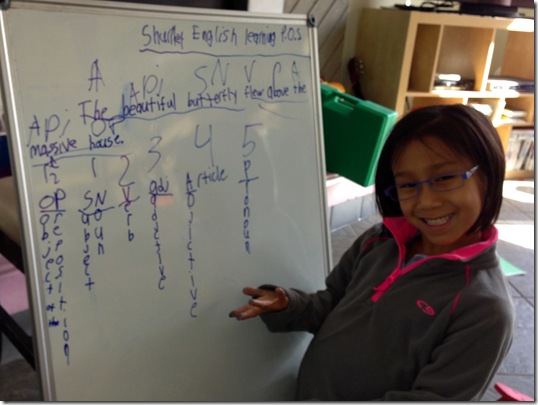 Shurley English learning P.O.S
A Adj SN V P A
The beautiful butterfly flew above the
Adj OP
massive house.
1 2 3 4 5
OP SN V adj Article P
Object
Preposition
Subject
Noun
Verb
adjective
Adjictive
Pronoun